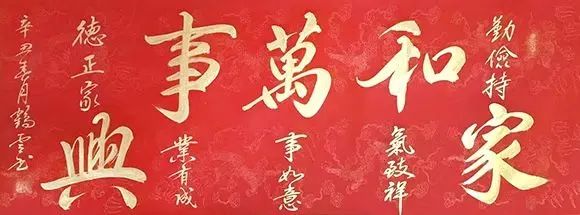 勤儉持
家
和
氣致祥
萬
事如意
事
業有成
德正家
興
辛丑春月鶴雲書